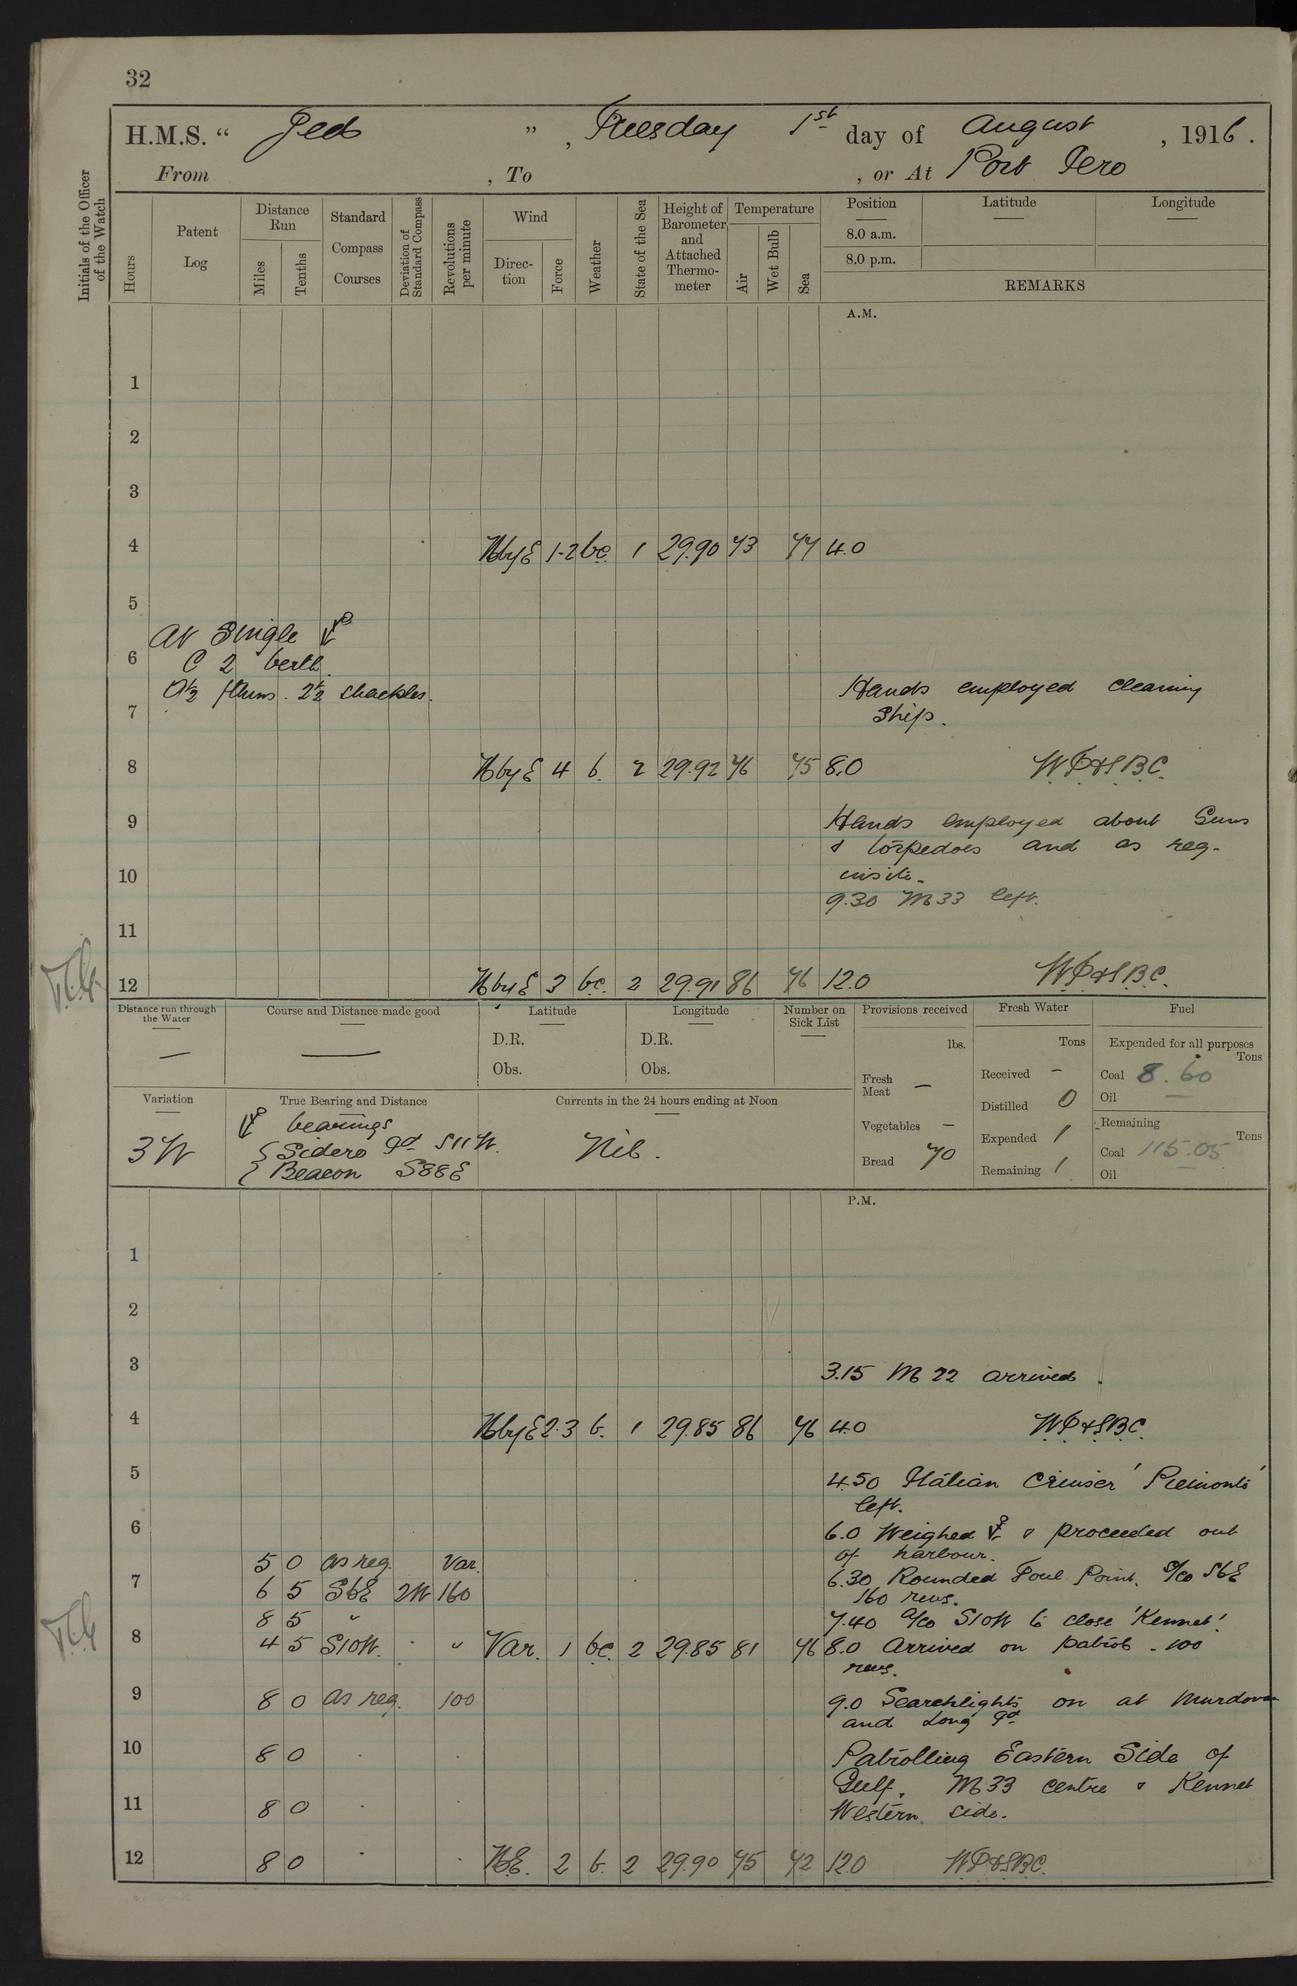 32
H.M.S. “ Jed ” , Tuesday 1st day of August , 1916 .
From , To , or At Port Iero
Initials of the Officer of the Watch
Hours
Patent Log
Distance Run
Miles
Tenths
Standard Compass Courses
Deviation of Standard Compass
Revolutions per minute
Wind
Direction
Force
Weather
State of the Sea
Height of Barometer and Attached Thermometer
Temperature
Air
Wet Bulb
Sea
Position
8.0 a.m.
8.0 p.m.
Latitude
Longitude
REMARKS
A.M.
1
2
3
4 NbyE 1-2 bc 1 29.90 73 74 4.0
5
At Single
6 C 2 berth.
9½ fthms. 2½ shackles.
Hands employed cleaning
7 Ship.
8 NbyE 4 b. 2 29.92 76 75 8.0 WP&SBC.
9 Hands employed about Guns
& torpedoes and as req-
10 uisite.
9.30 M33 left.
11
12 NbyE 3 bc. 2 29.91 86 76 12.0 WP&SBC.
Distance run through the Water
—
Course and Distance made good
—
Latitude
D.R.
Obs.
Longitude
D.R.
Obs.
Number on Sick List
Provisions received
lbs.
Fresh Meat —
Vegetables —
Bread 70
Fresh Water
Tons
Received —
Distilled 0
Expended 1
Remaining 1
Fuel
Expended for all purposes
Tons
Coal 8.60
Oil —
Remaining
Tons
Coal 115.05
Oil
Variation
3W
True Bearing and Distance
bearings
Sidero Id S11W.
Beacon S88E
Currents in the 24 hours ending at Noon
Nil.
P.M.
1
2
3 3.15 M 22 arrived.
4 NbyE 2.3 b. 1 29.85 86 76 4.0 WP&SBC.
5 4.50 Italian Cruiser 'Piemonte'
left.
6 6.0 Weighed & proceeded out
of harbour.
5 0 as req. Var.
7 6.30 Rounded Foul Point. a/co SbE
6 5 SbE 2W 160
160 revs.
8 5 " 7.40 a/co S10W to close 'Kennet'.
8 4 5 S10W. " Var. 1 bc. 2 29.85 81 76 8.0 Arrived on patrol. 100
revs.
9 8 0 as req. 100 9.0 Searchlights on at Murdovan
and Long Id
10 8 0 Patrolling Eastern Side of
Gulf. M33 centre & Kennet
11 8 0 Western side.
12 8 0 NE. 2 b. 2 29.90 75 72 12.0 WP&SBC.